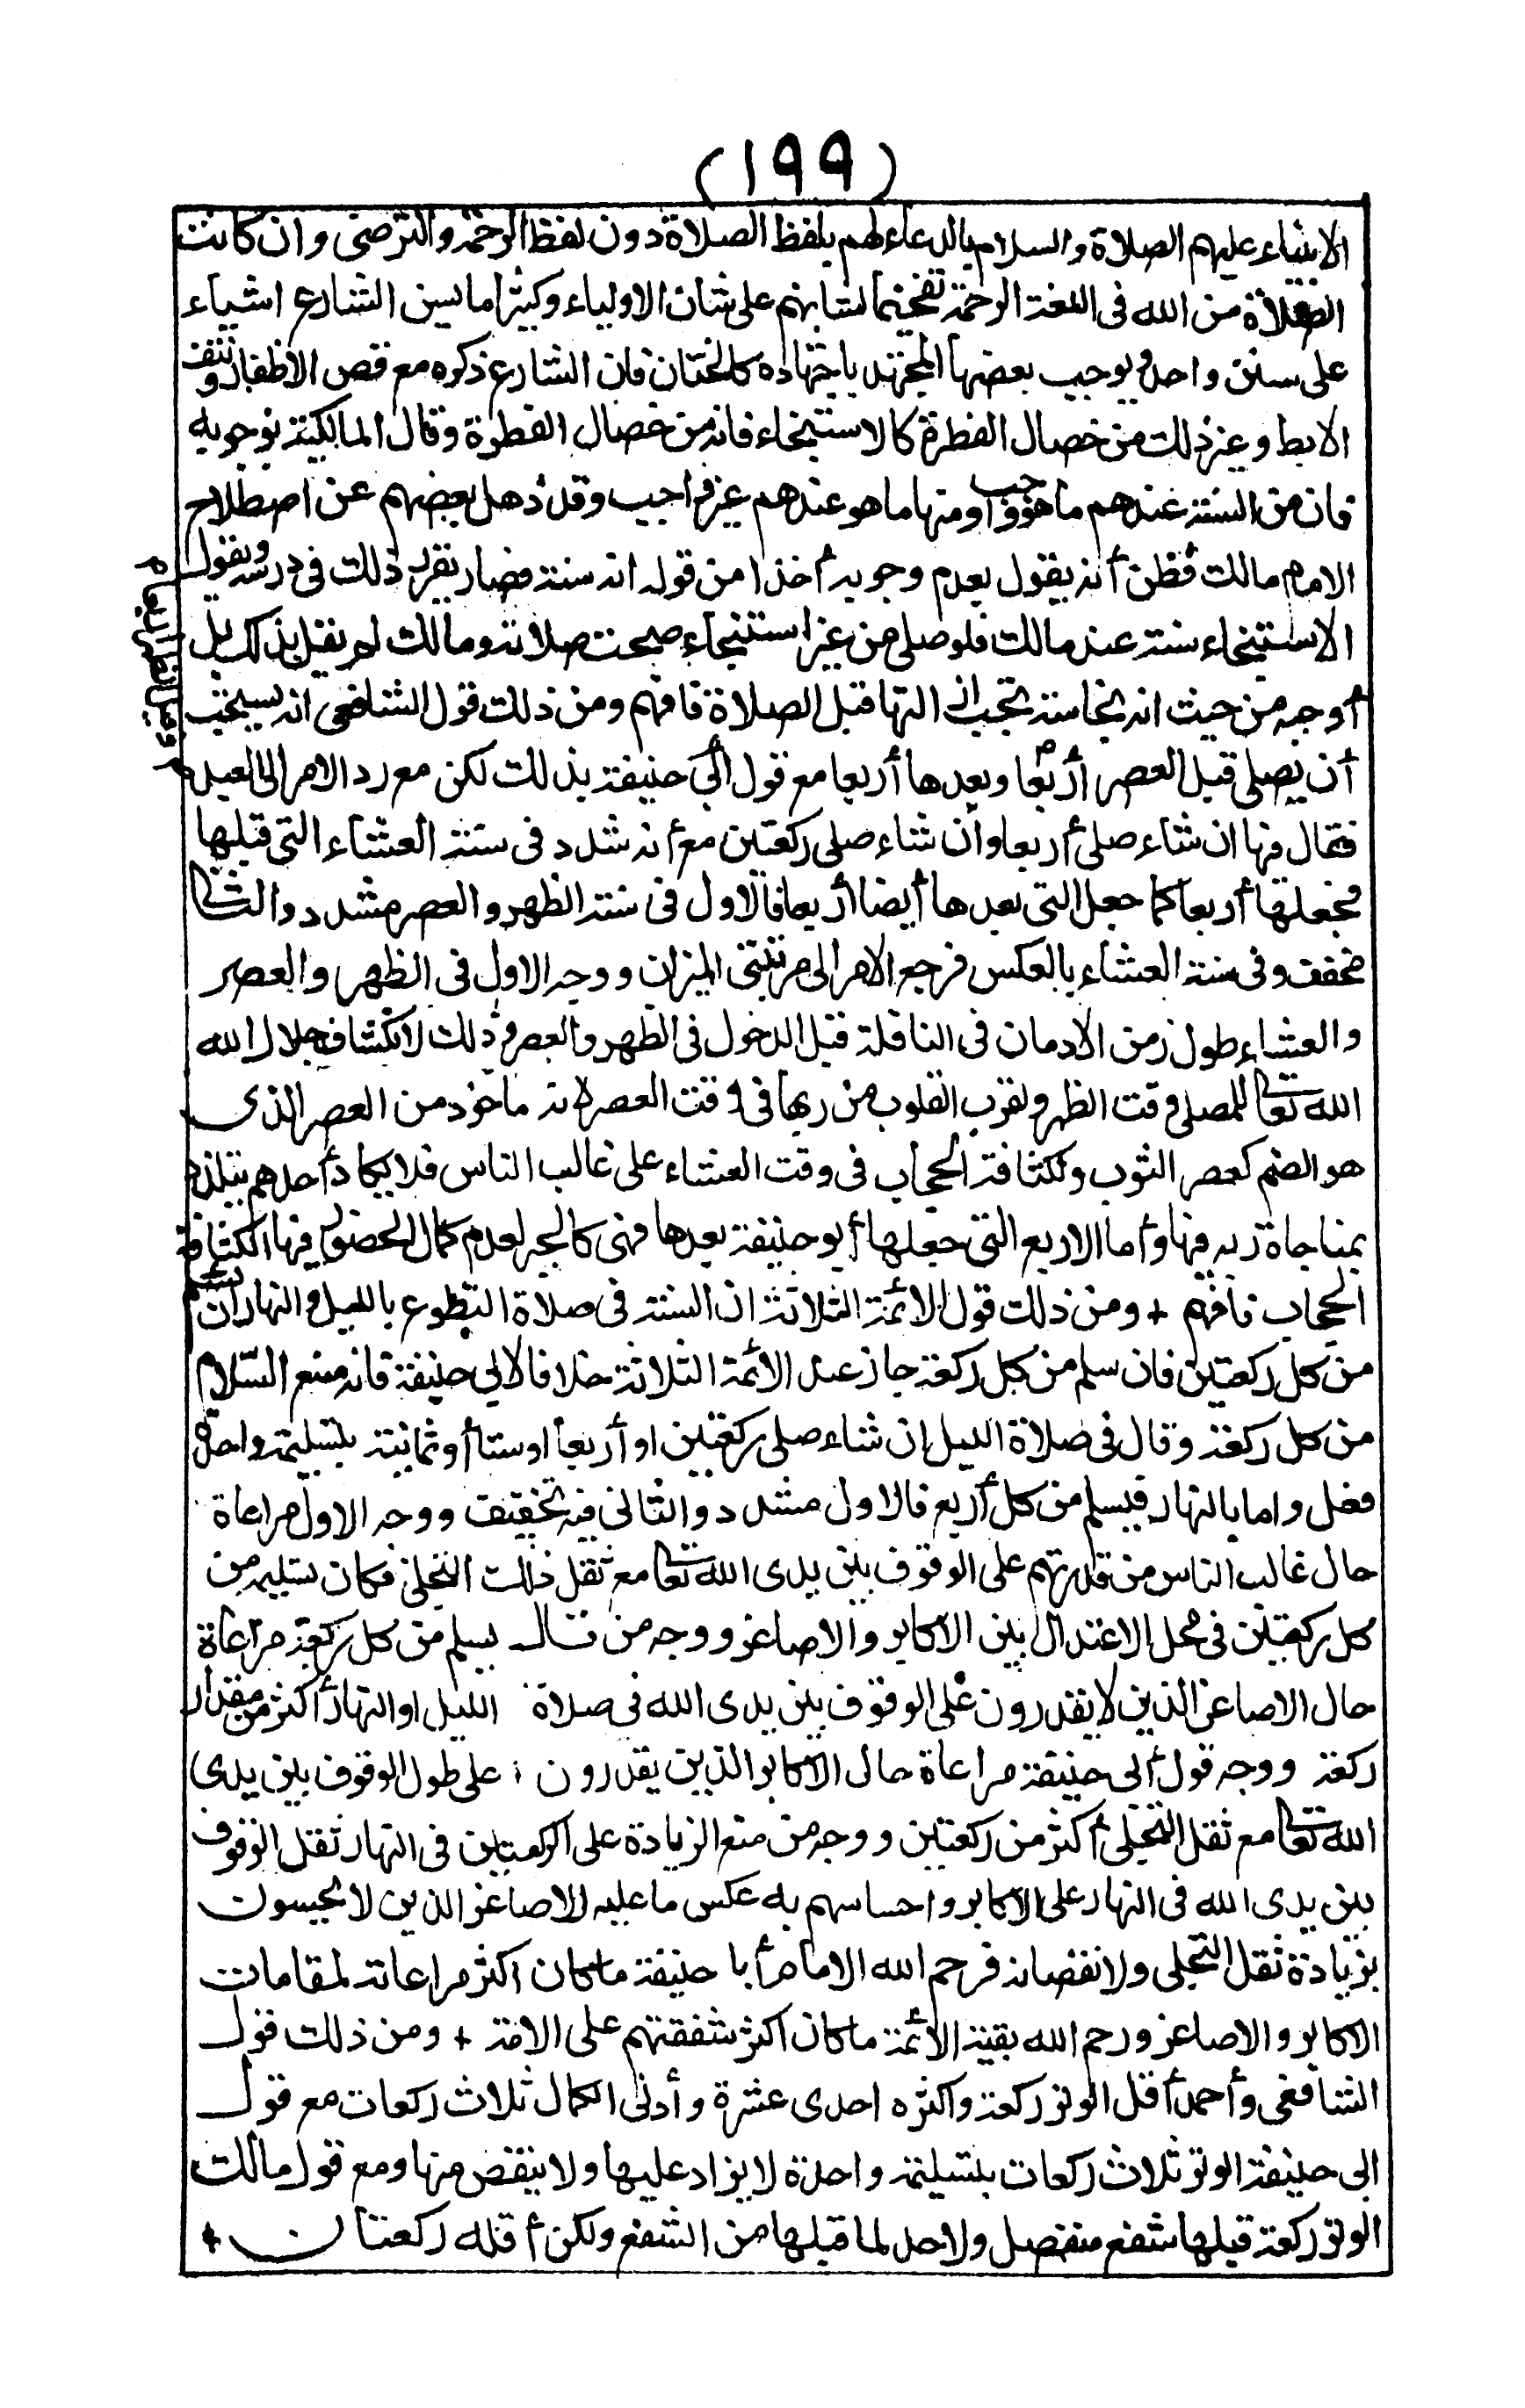 (١٩٩)
الانبياء عليهم الصلاة والسلام بالدعاء لهم بلفظ الصلاة دون لفظ الرحمة والترضى وان كانت
الصلاة من الله فى اللغة الرحمة تفخيما لشانهم على شان الاولياء وكثيرا ما يسن الشارع اشياء
على سنن واحد ويوجب بعضها المجتهد باجتهاده كالختان فان الشارع ذكره مع قص الاظفار ونتف
الابط وغير ذلك من خصال الفطرة كالاستنجاء فانه من خصال الفطرة وقال المالكية بوجوبه
فان من السنة عندهم ما هو واجب ومنها ما هو عندهم غير واجب وقد ذهل بعضهم عن اصطلاح
الامام مالك فظن أنه يقول بعدم وجوبه أخذا من قوله انه سنة فصار يقرر ذلك فى درسه ويقول
الاستنجاء سنة عند مالك فلو صلى من غير استنجاء صحت صلاته ومالك لم يقل بذلك بل
أوجبه من حيث انه نجاسة تجب ازالتها قبل الصلاة فافهم ومن ذلك قول الشافعى انه يستحب
أن يصلى قبل العصر أربعا وبعدها أربعا مع قول أبى حنيفة بذلك لكن مع رد الامر الى العبد
فقال فيها ان شاء صلى أربعا وان شاء صلى ركعتين مع أنه شدد فى سنة العشاء التى قبلها
فجعلها أربعا كما جعل التى بعدها أيضا أربعا فالاول فى سنة الظهر والعصر مشدد والثانى
مخفف وفى سنة العشاء بالعكس فرجع الامر الى مرتبتى الميزان ووجه الاول فى الظهر والعصر
والعشاء طول زمن الادمان فى النافلة قبل الدخول فى الظهر والعصر وذلك لانكشاف جلال الله
الله تعالى للمصلى وقت الظهر ولقرب القلوب من ربها فى وقت العصر لانه ماخوذ من العصر الذى
هو الضم كعصر الثوب ولكثافة الحجاب فى وقت العشاء على غالب الناس فلا يكاد أحدهم يتلذذ
بمناجاة ربه فيها وأما الاربع التى جعلها أبو حنيفة بعدها فهى كالجبر لعدم كمال الحضور فيها لكثافة
الحجاب فافهم + ومن ذلك قول الائمة الثلاثة ان السنة فى صلاة التطوع بالليل والنهار ان يسلم
من كل ركعتين فان سلم من كل ركعة جاز عند الائمة الثلاثة خلافا لابى حنيفة فانه منع السلام
من كل ركعة وقال فى صلاة الليل ان شاء صلى ركعتين او أربعا او ستا أو ثمانية بتسليمة واحدة
فعل واما بالنهار فيسلم من كل أربع فالاول مشدد والثانى فيه تخفيف ووجه الاول مراعاة
حال غالب الناس من قدرتهم على الوقوف بين يدى الله تعالى مع ثقل ذلك التجلى فكان تسليمه من
كل ركعتين فى محل الاعتدال بين الاكابر والاصاغر ووجه من قال يسلم من كل ركعة مراعاة
حال الاصاغر الذين لا يقدرون على الوقوف بين يدى الله فى صلاة الليل او النهار أكثر من مقدار
ركعة ووجه قول أبى حنيفة مراعاة حال الاكابر الذين يقدرون على طول الوقوف بين يدى
الله تعالى مع ثقل التجلى أكثر من ركعتين ووجه من منع الزيادة على الركعتين فى النهار ثقل الوقوف
بين يدى الله فى النهار على الاكابر واحساسهم به عكس ما عليه الاصاغر الذين لا يحسون
بزيادة ثقل التجلى ولا نقصانه فرحم الله الامام أبا حنيفة ما كان اكثر مراعاته لمقامات
الاكابر والاصاغر ورحم الله بقية الائمة ما كان اكثر شفقتهم على الامة + ومن ذلك قول
الشافعى وأحمد أقل الوتر ركعة واكثره احدى عشرة وأدنى الكمال ثلاث ركعات مع قول
ابى حنيفة الوتر ثلاث ركعات بتسليمة واحدة لا يزاد عليها ولا ينقص منها ومع قول مالك
الوتر ركعة قبلها شفع منفصل ولا حد لما قبلها من الشفع ولكن أقله ركعتان +